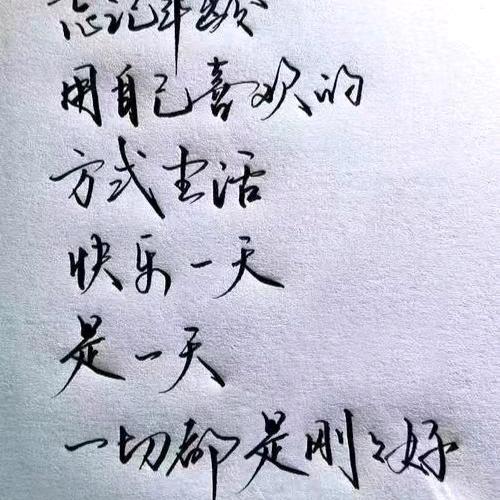 忘记年龄
用自己喜欢的
方式生活
快乐一天
是一天
一切都是刚々好